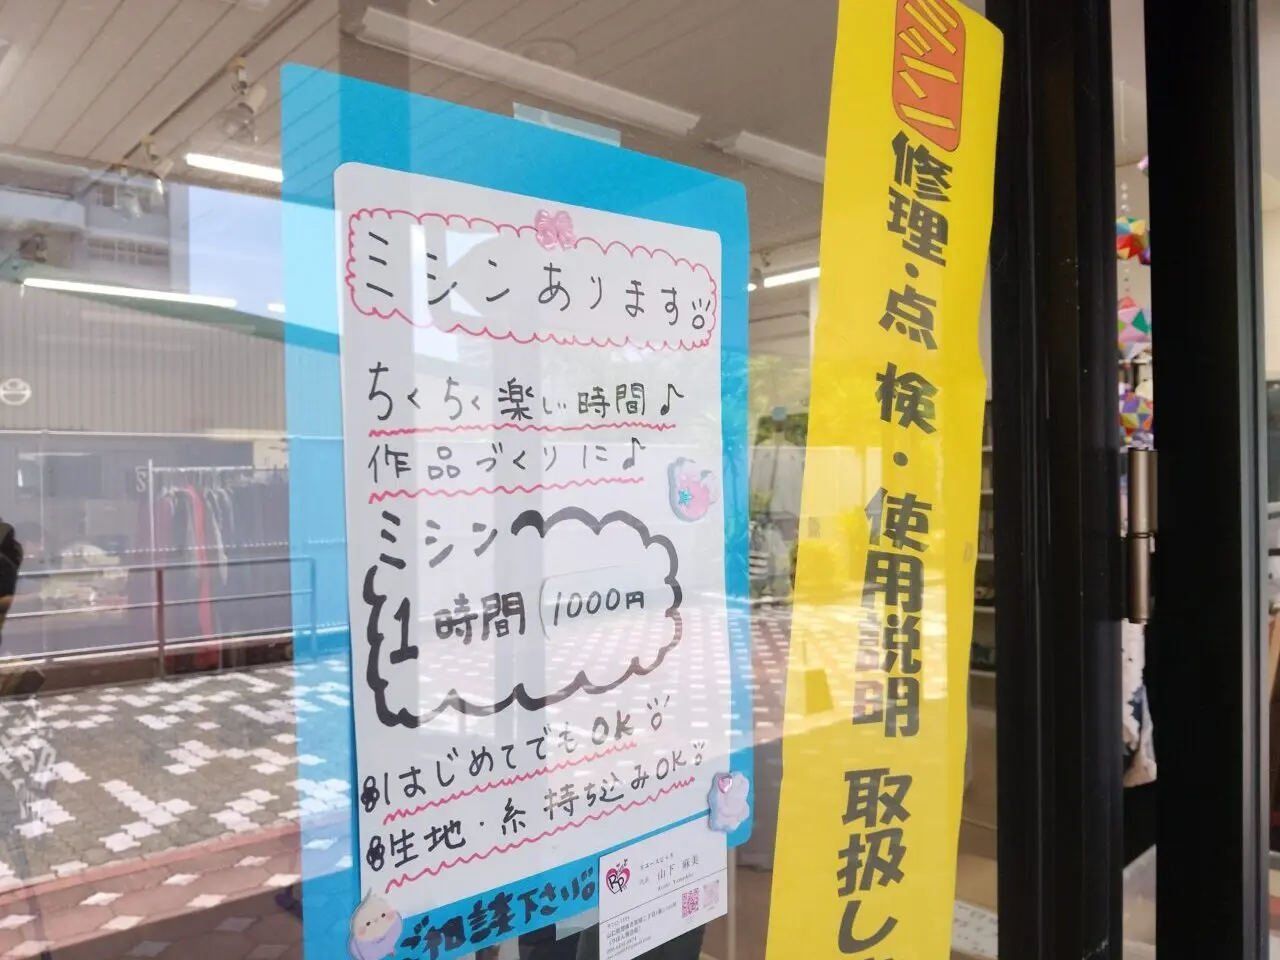 ミシンあります
ちくちく楽しい時間♪
作品づくりに♪
ミシン
1時間 1000円
はじめてでもOK
生地・糸持ち込みOK
ご相談下さい
山下 麻美
RP
ミシン
修理・点検・使用説明 取扱し